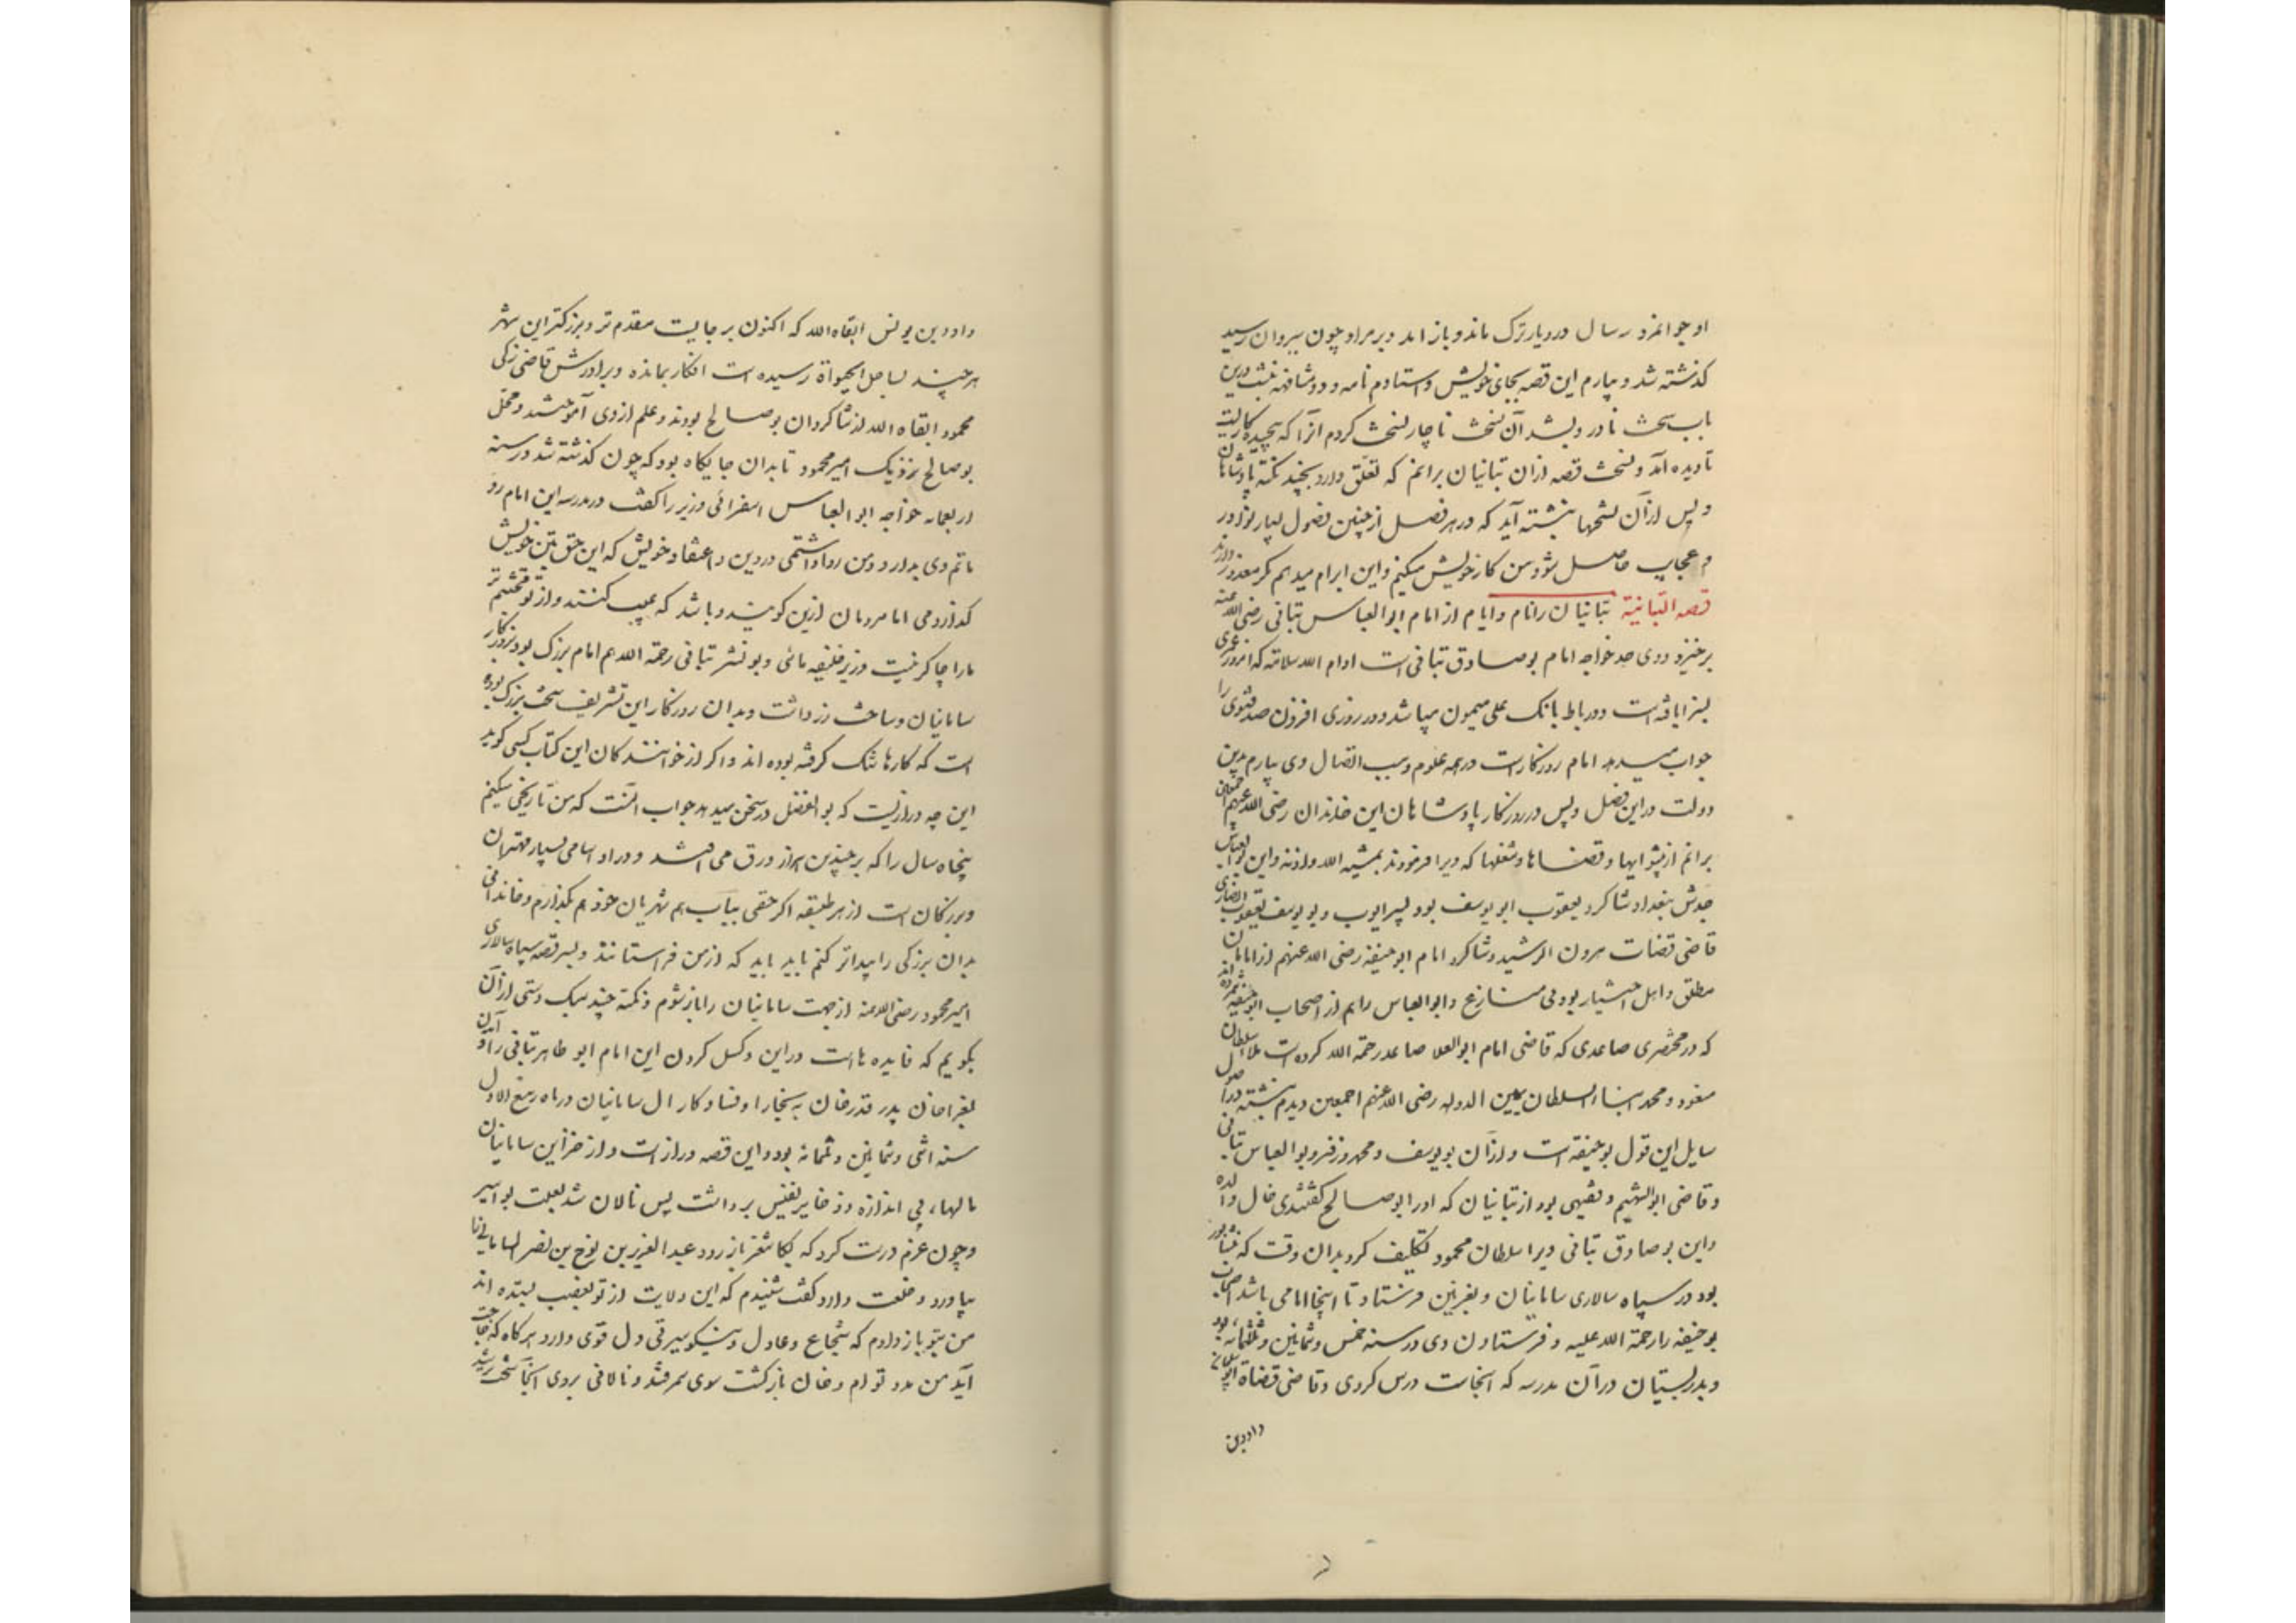 او جوانمرد سال در دیار ترک ماند و باز امد و بر مراد چون ببروان رسید
کذشته شد و بیارم این قصه بجای خویش و استادم نامه و دو مشافهه نبشت درین
باب سخت نادر و بشد آن نسخت ناچار نسخت کردم انرا که پیچیده کاریست
تا دیده آید و نسخت قصه ازان تبانیان برانم که تعلق دارد بچند نکته پادشاهان
و پس ازان نسختها بنبشته آید که در هر فصل از چنین فصول بسیار نوادر
و عجایب حاصل شود و من کار خویش میکنم و این ابرام میدهم مکر معذور دارند
قصه التبانیة تبانیان را نام و ایام از امام ابوالعباس تبانی رضی الله عنه
برخیزد و وی جد خواجه امام بوصادق تبانی است ادام الله سلامته که امروز عمری
بسزا یافته است و در رباط بانک علی میمون میباشد و در روزی افزون صد فتوی را
جواب میدهد امام روزکار است در همه علوم و سبب اتصال وی بیارم بدین
دولت در این فصل و پس در روزکار پادشاهان این خاندان رضی الله عنهم اجمعین
برانم از پیشوایها و قضاها و شغلها که ویرا فرمودند بمشیه الله و اذنه و این ابوالعباس
جدش ببغداد شاکرد یعقوب ابو یوسف بود پسر ایوب و بو یوسف یعقوب انصاری
قاضی قضات هرون الرشید و شاکرد امام ابوحنیفه رضی الله عنهم از امامان
مطلق و اهل اختیار بود بی منازع و ابوالعباس را هم از اصحاب ابوحنیفه شمرده اند
که در مختصری صاعدی که قاضی امام ابوالعلا صاعد رحمة الله کرده است ملا سلطان
مسعود و محمد ابناء السلطان یمین الدوله رضی الله عنهم اجمعین دیدم نبشته در اصول
مسایل این قول بوحنیفه است و ازان بویوسف و محمد و زفر و بوالعباس تبانی
و قاضی ابوالهیثم و فقیهی بود از تبانیان که اورا بوصالح کفتندی خال والده
این بوصادق تبانی ویرا سلطان محمود تکلیف کرد بدان وقت که بنشابور
بود در سپاه سالاری سامانیان و بغزنین فرستاد تا اینجا امامی باشد اصحاب
بوحنیفه را رحمة الله علیه و فرستادن وی در سنه خمس و ثمانین و ثلثمائه بود
و بدر بستیان در آن مدرسه که انجاست درس کردی و قاضی قضاة ابو سلیمان
داود بن
داود بن یونس ابقاه الله که اکنون بر جایست مقدم تر و بزرکتر این شهر
هر چند بساحل الحیوة رسیده است افکار بمانده و برادرش قاضی زکی
محمود ابقاه الله از شاکردان بوصالح بودند و علم از وی آموختند و محل
بوصالح نزدیک امیر محمود تا بدان جایکاه بود که چون کذشته شد در سنه
اربعمایه خواجه ابوالعباس اسفرائی وزیر را کفت در مدرسه این امام رو
ماتم وی بدار و من روا داشتمی در دین و اعتقاد خویش که این حق بتن خویش
کذاردمی اما مردمان ازین کویند و باشد که عیب کنند و از تو محتشم تر
مارا چاکر نیست وزیر خلیفه مائی و بونشر تبانی رحمة الله هم امام بزرک بود بروزکار
سامانیان و ساخت زر داشت و بدان روزکار این تشریف سخت بزرک بوده
است که کارها تنک کرفته بوده اند و اکر از خوانندکان این کتاب کسی کوید
این چه درازیست که بوالفضل در سخن میدهد جواب آنست که من تاریخی میکنم
پنجاه سال را که بر چندین هزار ورق می افتد و دراو اسامی بسیار مهتران
و بزرکان است از هر طبقه اکر حقی بباب هم شهریان خود هم بکذارم و خاندانی
بدان بزرکی را پیداتر کنم باید که از من فراستانند و بسر قصه سپاه سالاری
امیر محمود رضی الله عنه از جهت سامانیان را باز شوم و نکته چند سبک دستی از آن
بکویم که فایده هاست در این و کسل کردن این امام ابو طاهر تبانی را و آمدن
بغراخان پدر قدرخان به بخارا و فساد کار ال سامانیان در ماه ربیع الاول
سنه اثنی و ثمانین و ثلثمائه بود و این قصه دراز است و از خزاین سامانیان
مالهاء بی اندازه و ذخایر نفیس برداشت پس نالان شد بعلت بواسیر
و چون عزم درست کرد که بکاشغر باز رود عبدالعزیز بن نوح بن نصر السامانی را
بیاورد و خلعت داد و کفت شنیدم که این ولایت از تو بغصب بستده اند
من بتو باز دادم که شجاع و عادل و نیکو سیرتی دل قوی دارد هر کاه که حاجت
آید من مدد تو ام و خان باز کشت سوی سمرقند و نالانی بر وی انجا سخت رشد